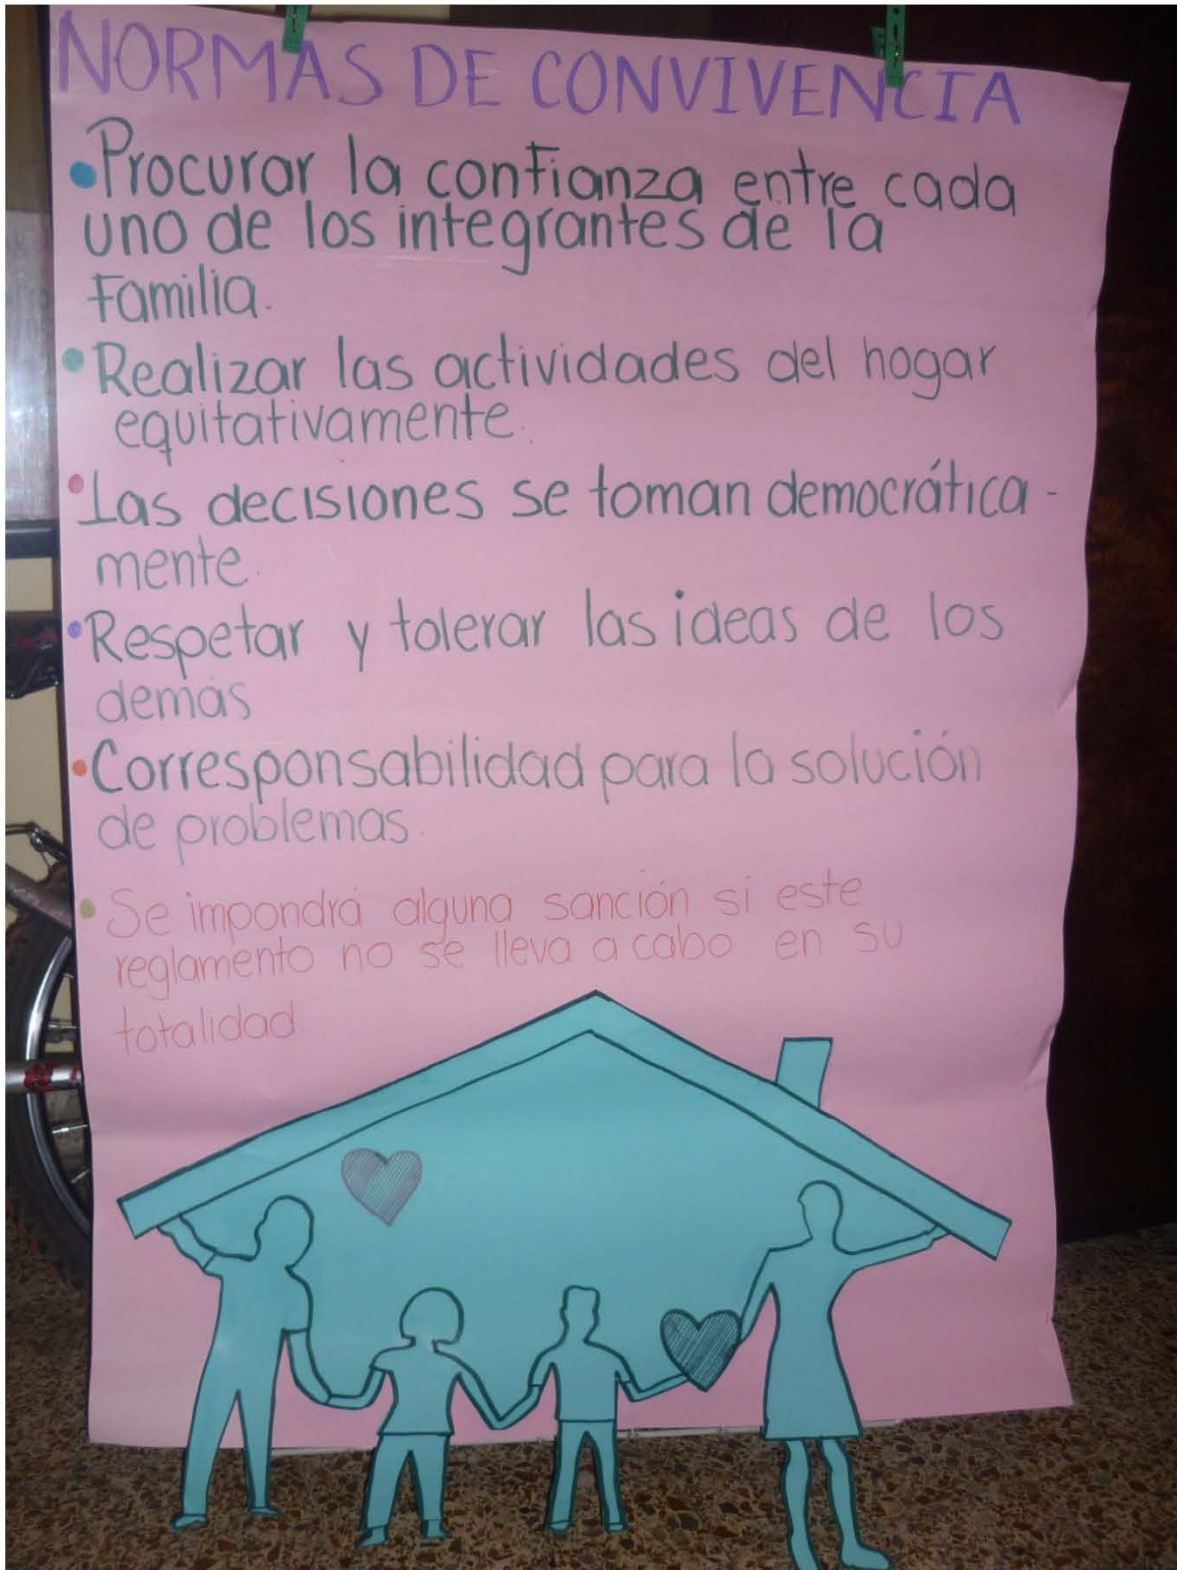 NORMAS DE CONVIVENCIA
• Procurar la confianza entre cada
uno de los integrantes de la
familia.
• Realizar las actividades del hogar
equitativamente.
• Las decisiones se toman democrática-
mente.
• Respetar y tolerar las ideas de los
demás
• Corresponsabilidad para la solución
de problemas.
• Se impondrá alguna sanción si este
reglamento no se lleva a cabo en su
totalidad.